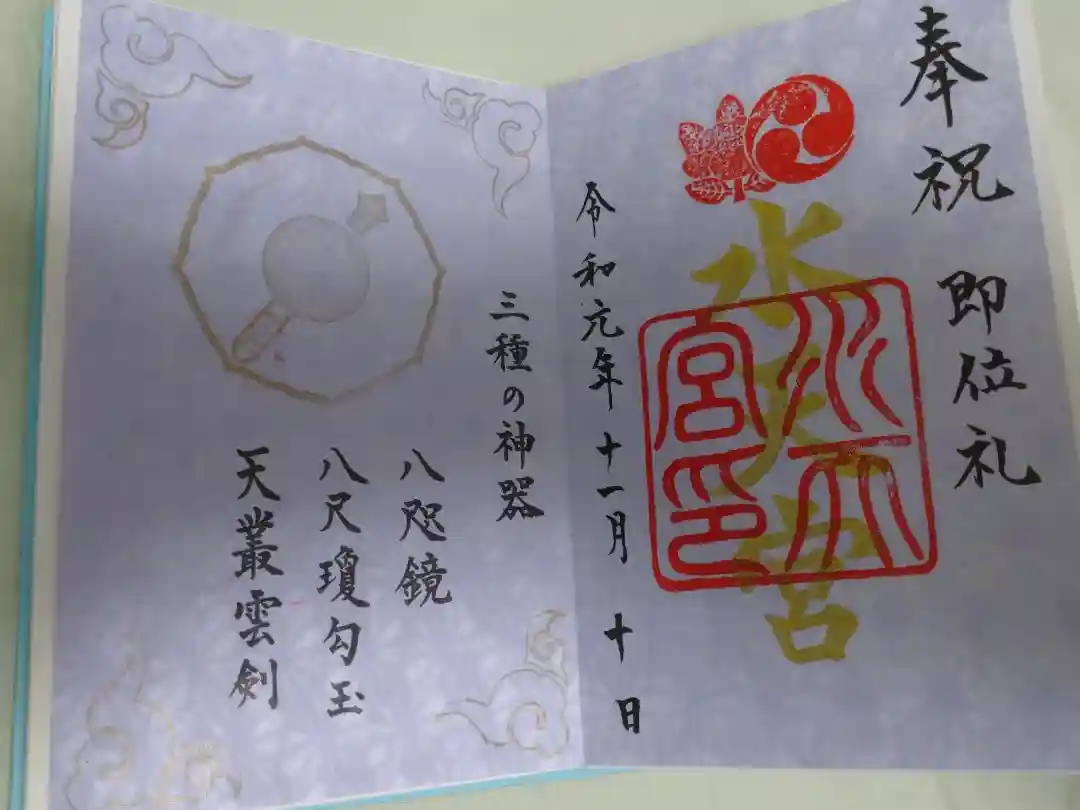 奉祝 即位礼
水天宮
水天宮印
令和元年十一月十日
三種の神器
八咫鏡
八尺瓊勾玉
天叢雲剣